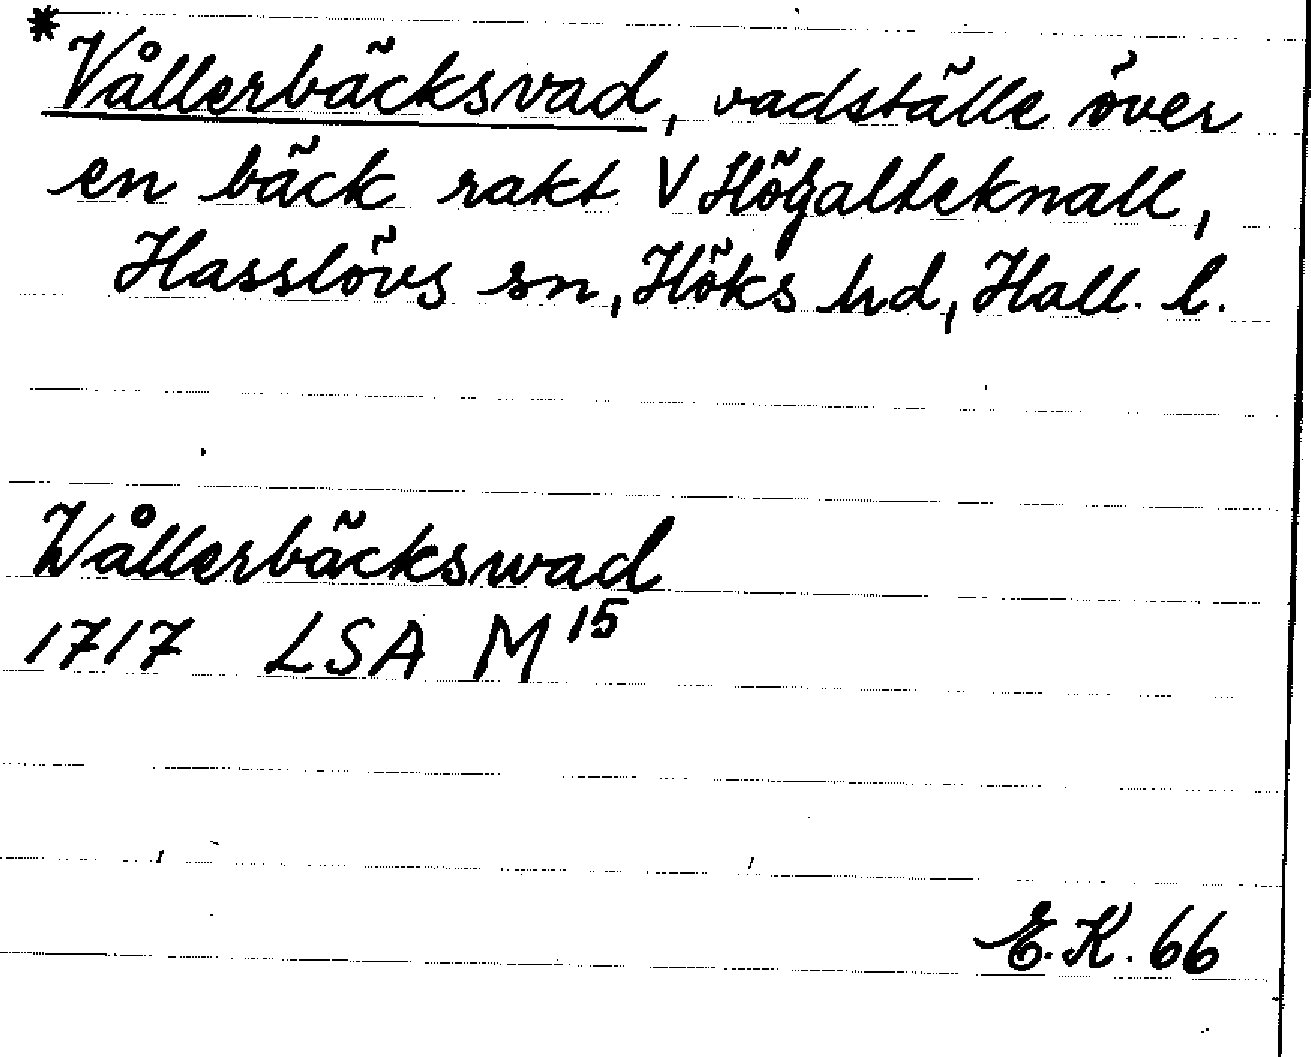 *Vållerbäcksvad, vadställe över
en bäck rakt V Högalteknall,
Hasslövs sn, Höks hd, Hall. l.
Wållerbäckswad
1717 LSA M¹⁵
E.K. 66